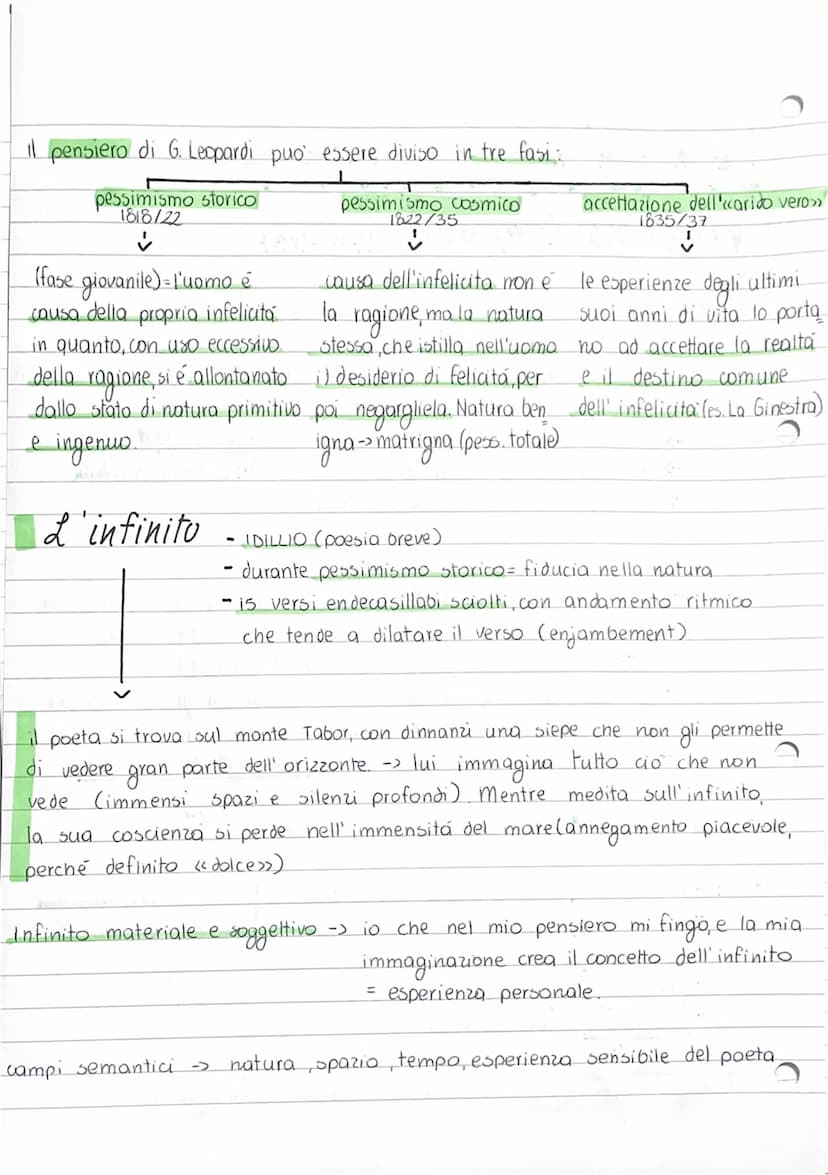 il pensiero di G. Leopardi può essere diviso in tre fasi:
pessimismo storico
1818/22
(fase giovanile)=l'uomo é
causa della propria infelicitá
in quanto, con uso eccessivo
della ragione, si é allontanato
dallo stato di natura primitivo
e ingenuo.
pessimismo cosmico
1822/35
causa dell'infelicita non é
la ragione, ma la natura
stessa, che istilla nell'uomo
il desiderio di felicitá, per
poi negargliela. Natura ben
igna -> matrigna (pess. totale)
accettazione dell'«arido vero»
1835/37
le esperienze degli ultimi
suoi anni di vita lo porta
no ad accettare la realtá
e il destino comune
dell' infelicitá (es. La Ginestra)
L'infinito
- IDILLIO (poesia breve)
- durante pessimismo storico= fiducia nella natura
- 15 versi endecasillabi sciolti, con andamento ritmico
che tende a dilatare il verso (enjambement)
il poeta si trova sul monte Tabor, con dinnanzi una siepe che non gli permette
di vedere gran parte dell' orizzonte. -> lui immagina tutto ció che non
vede (immensi spazi e silenzi profondi). Mentre medita sull'infinito,
la sua coscienza si perde nell' immensitá del mare (annegamento piacevole,
perché definito «dolce»)
Infinito materiale e soggettivo -> io che nel mio pensiero mi fingo, e la mia
immaginazione crea il concetto dell'infinito
= esperienza personale.
campi semantici -> natura, spazio, tempo, esperienza sensibile del poeta